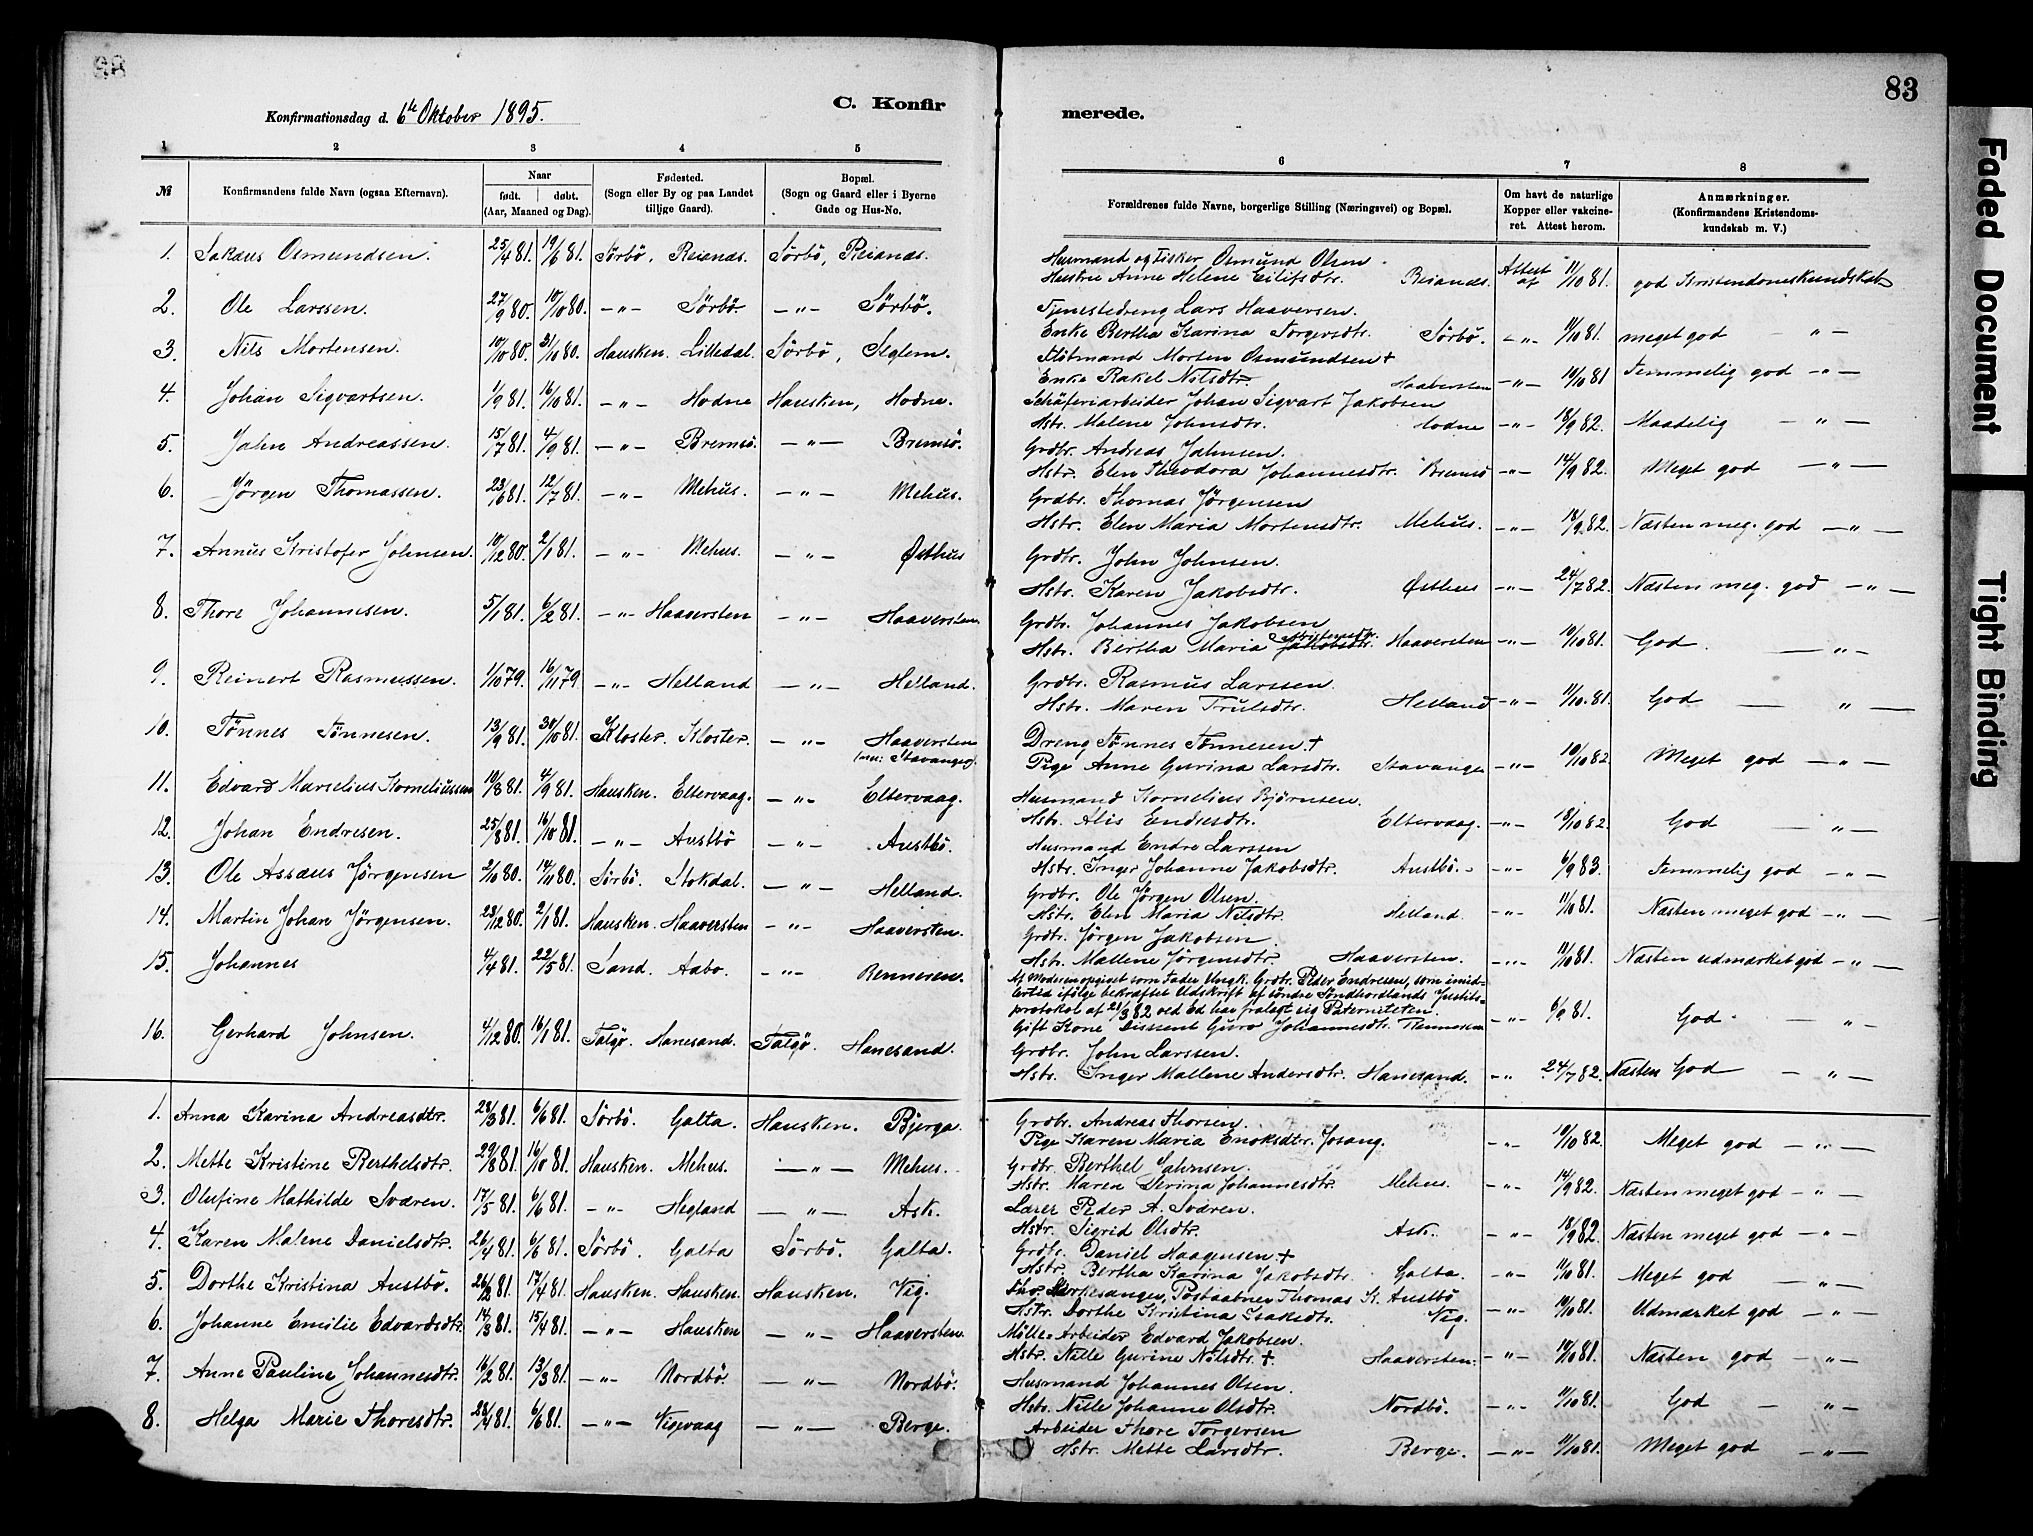 83
Konfirmationsdag d. 6te Oktober 1895.
C. Konfirmerede.
1 2 3 4 5 6 7 8
№
Konfirmandens fulde Navn (ogsaa Efternavn).
Naar
født. døbt.
(Aar, Maaned og Dag).
Fødested.
(Sogn eller By og paa Landet
tillige Gaard).
Bopæl.
(Sogn og Gaard eller i Byerne
Gade og Hus-No.
Forældrenes fulde Navne, borgerlige Stilling (Næringsvei) og Bopæl.
Om havt de naturlige
Kopper eller vakcine-
ret. Attest herom.
Anmærkninger.
(Konfirmandens Kristendoms-
kundskab m. V.)
1. Sakæus Osmundsen. 25/4 81. 19/6 81. Sørbö, Reianes. Sørbö, Reianes.
Husmand og Fisker Osmund Olsen
Hustru Anne Helene Eilifsdtr. Reianes. Attest af 11/10 81. god Kristendomskundskab
2. Ole Larssen. 27/9 80. 10/10 80. -"- Sörbö. -"- Sörbö.
Tjenestedreng Lars Haaversen.
Enke Bertha Karina Torgersdtr. Sörbö. -"- 11/10 81. meget god "-
3. Nils Mortensen. 10/10 80. 31/10 80. Hausken. Lilledal. Sörbö, Seglem.
Flötmand Morten Osmundsen +
Enke Rakel Nilsdtr. Haaversten -"- 10/10 81 Temmelig god -"-
4. Johan Sigvartsen. 1/9 81. 16/10 81. -"- Hodne Hausken, Hodne.
Schäferiarbeider Johan Sigvart Jakobsen
Hst. Malene Johnsdtr. Hodne -"- 18/9 82. Maadelig -"-
5. Jahn Andreassen. 15/7 81. 4/9 81. -"- Bremsö. -"- Bremsö.
Grdbr. Andreas Jahnsen.
Hstr. Elen Theodora Johannesdtr. Bremsö -"- 14/9 82. Meget god -"-
6. Jørgen Thomassen. 23/6 81. 12/7 81. -"- Mehus. -"- Mehus.
Grdbr. Thomas Jørgensen
Hstr. Elen Maria Mortensdtr. Mehus. -"- 18/9 82. Næsten meg. god -"-
7. Annus Kristofer Johnsen. 10/12 80. 2/1 81. -"- Mehus. -"- Østhus
Grdbr. John Johnsen.
Hstr. Karen Jakobsdtr. Østhus -"- 24/7 82. Næsten meg. god -"-
8. Thore Johannesen. 5/1 81. 6/2 81. -"- Haaversten -"- Haaversten.
Grdbr. Johannes Jakobsen
Hstr. Bertha Maria Haaversten -"- 10/10 81. God. -"-
9. Reinert Rasmussen. 1/10 79. 16/11 79 -"- Helland -"- Helland.
Grdbr. Rasmus Larssen.
Hstr. Maren Trulsdtr. Helland -"- 11/10 81. God -"-
10. Tönnes Tönnesen. 13/9 81. 30/10 81. Kloster. Kloster. -"- Haaversten
Stavanger.
Dreng Tönnes Tönnesen. +
Pige Anne Gurina Larsdtr. Stavanger -"- 10/10 82 Meget god -"-
11. Edvard Marselius Korneliussen 10/8 81. 4/9 81. Hausken. Eltervaag. -"- Eltervaag.
Husmand Kornelius Bjørnsen.
Hstr. Alis Endresdtr. Eltervaag. -"- 18/10 82. God -"-
12. Johan Endresen. 25/8 81. 16/10 81. -"- Austbö -"- Austbö.
Husmand Endre Larssen
Hstr. Inger Johanne Jakobsdtr. Austbö. -"- 6/9 83. Temmelig god -"-
13. Ole Assæus Jörgensen 2/10 80. 14/11 80. Sørbö. Stokdal. -"- Helland.
Grdbr. Ole Jørgen Olsen.
Hstr. Elen Maria Nilsdtr. Helland. -"- 11/10 81. Næsten meget god -"-
14. Martin Johan Jörgensen. 28/12 80. 2/1 81. Hausken. Haaversten -"- Haaversten.
Grdbr. Jørgen Jakobsen.
Hstr. Mallene Jørgensdtr. Haaversten. -"- 11/10 81. Næsten udmærket god -"-
15. Johannes 4/4 81. 22/5 81. Sand. Aabo. -"- Rennesen.
Af Moderen opgivet som Fader Ungk. Grdbr. Peder Endresen, som imid-
lertid ifölge bekræftet Udskrift af söndre Söndhordlands Justits-
protokol af 21/3 82 ved Ed har fralagt sig Paterniteten.
Gift Kone Dissent Guro Johannesdtr. Rennesen -"- 6/9 81. God. -"-
16. Gerhard Johnsen. 4/12 80. 16/1 81. Talgø. Hanesand. Talgø. Hanesand.
Grdbr. John Larssen.
Hstr. Inger Mallene Andersdtr. Hanesand. -"- 24/7 82. Næsten God -"-
1. Anna Karina Andreasdtr. 28/3 81. 6/6 81. Sörbö. Galta. Hausken. Bjerga.
Grdbr. Andreas Thorsen.
Pige Karen Maria Enoksdtr. Josang. -"- 10/10 82. Meget god -"-
2. Mette Kristine Berthelsdtr. 29/8 81. 16/10 81. Hausken. Mehus. -"- Mehus.
Grdbr. Berthel Jahnsen.
Hstr. Maren Serina Johannesdtr. Mehus -"- 14/9 82. Næsten meget god -"-
3. Olufine Mathilde Sværen. 17/5 81. 6/6 81. -"- Hegland -"- Ask.
Lærer Peder A. Sværen.
Hstr. Sigrid Olsdtr. Ask. -"- 18/9 82. Næsten meget god -"-
4. Karen Malene Danielsdtr. 26/4 81. 6/6 81. Sörbö. Galta Sörbö. Galta.
Grdbr. Daniel Haagensen. +
Hstr. Bertha Karina Jakobsdtr. Galta. -"- 11/10 81. Meget god -"-
5. Dorthe Kristina Austbö. 26/2 81. 17/4 81. Hausken. Hausken. Hausken. Vig.
Kirkesanger, Postaabner Thomas K. Austbö
Hstr. Dorthe Kristina Isaksdtr. Vig. -"- 10/10 81. Udmærket god -"-
6. Johanne Emilie Edvardsdtr. 14/3 81. 15/4 81. -"- Hausken -"- Haaversten.
Mölle-Arbeider Edvard Jakobsen.
Hstr. Nille Gurine Nilsdtr. + Haaversten. -"- 10/10 81. Næsten god -"-
7. Anne Pauline Johannesdtr. 16/2 81. 13/3 81. -"- Nordbö. -"- Nordbö.
Husmand Johannes Olsen.
Hstr. Nille Johanne Olsdtr. Nordbö. -"- 11/10 81. God -"-
8. Helga Marie Thoresdtr. 28/4 81. 6/6 81. -"- Vigevaag -"- Berge.
Arbeider Thore Torgersen
Hstr. Mette Larsdtr. Berge. -"- 11/10 81. Meget god -"-
Faded Document
Tight Binding